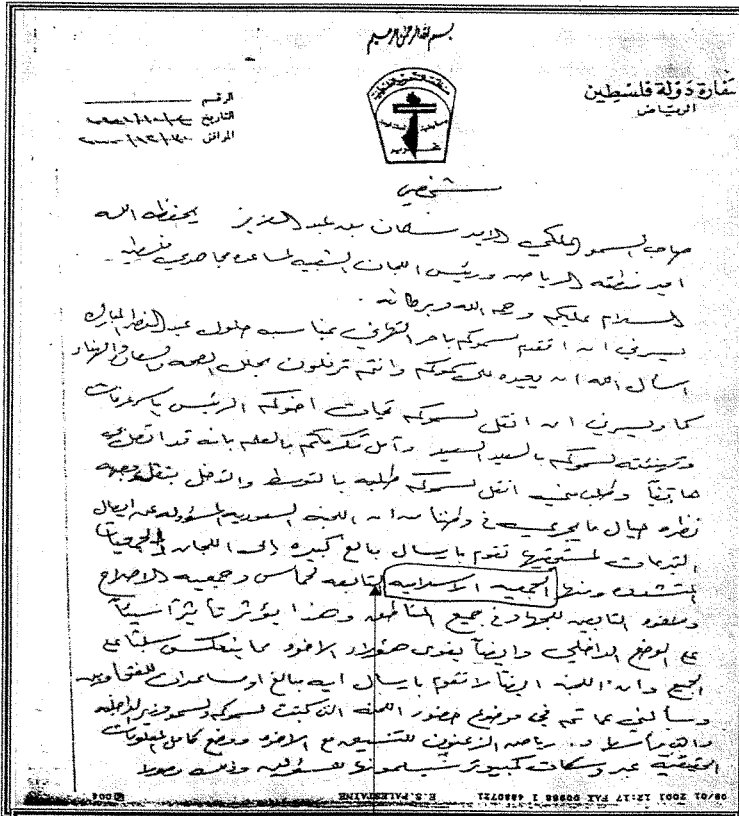 بسم الله الرحمن الرحيم
سفارة دولة فلسطين
الرياض
الرقم
التاريخ
الموافق
شخصي
صاحب السمو الملكي الامير سلمان بن عبد العزيز يحفظه الله
امير منطقة الرياض ورئيس اللجان الشعبيه لمساعدة مجاهدي فلسطين
السلام عليكم ورحمة الله وبركاته .
يسرني ان اتقدم لسموكم باحر التهاني بمناسبه حلول عيد الفطر المبارك
اسأل الله ان يعيده على سموكم وانتم ترفلون بحلل الصحه والسعادة والهناء
كما ويسرني ان انقل لسموكم تحيات اخوكم الرئيس ياسر عرفات
وتهنئته لسموكم بالعيد السعيد وآمل تكرمكم بالعلم بانه قد اتصل بي
هاتفياً وطلب مني انقل لسموكم طلبه بالتوسط والتدخل بنقل وجهه
نظره حيال ما يجري في وطننا من ان اللجنه السعوديه المسؤوله عن ايصال
التبرعات لمستحقيها تقوم بارسال مبالغ كبيره إلى اللجان والجمعيات
المتشدده ومنها الجمعيه الاسلاميه التابعه لحماس وجمعيه الاصلاح
التابعين للجهاد في جميع المناطق وهذا يؤثر تأثيراً سيئاً
على الوضع الداخلي وايضاً يقوي هؤلاء الاخوه مما ينعكس سلباً على
الجميع وان اللجنه ايضاً لا تقوم بارسال ايه مبالغ او مساعدات للفتحاويين
وسألني عما تم في موضوع حضور اللجنه التي كتبت لسموكم ولسمو وزير الداخليه
د. رياض الزعنون للتنسيق مع الاخوه ووضع كامل المعلومات
الحقيقيه عبر كمبيوتر سيسلمونها للمسؤولين وذلك
09/01 2001 12:17 FAX 00966 1 4880721 E.S. PALESTAINE 004